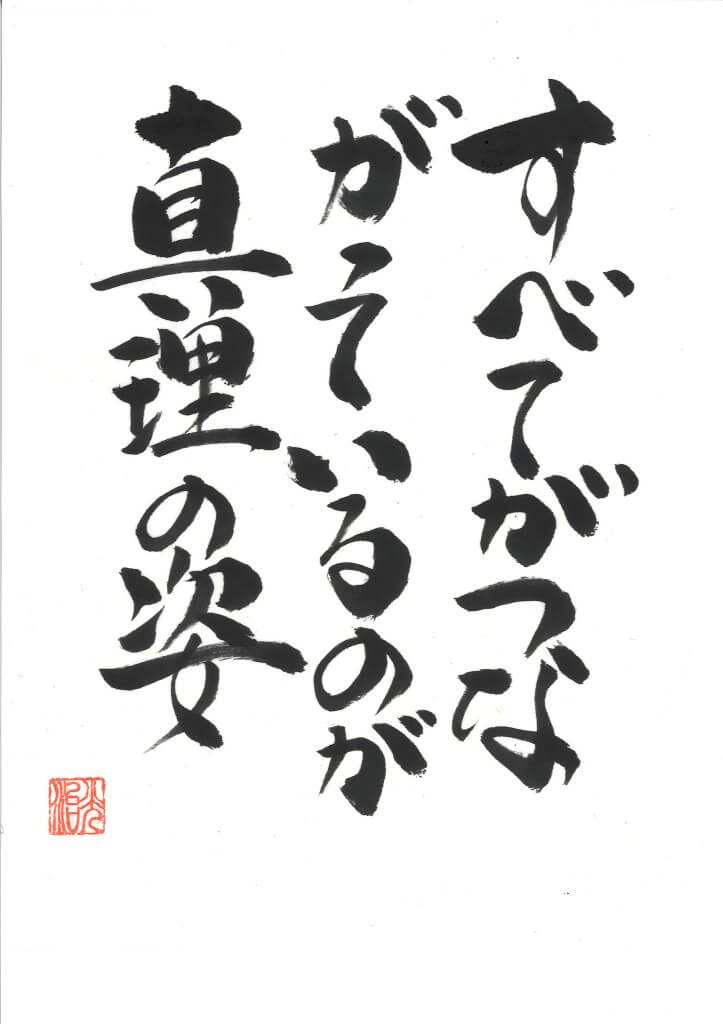 すべてがつな
がっているのが
真理の姿